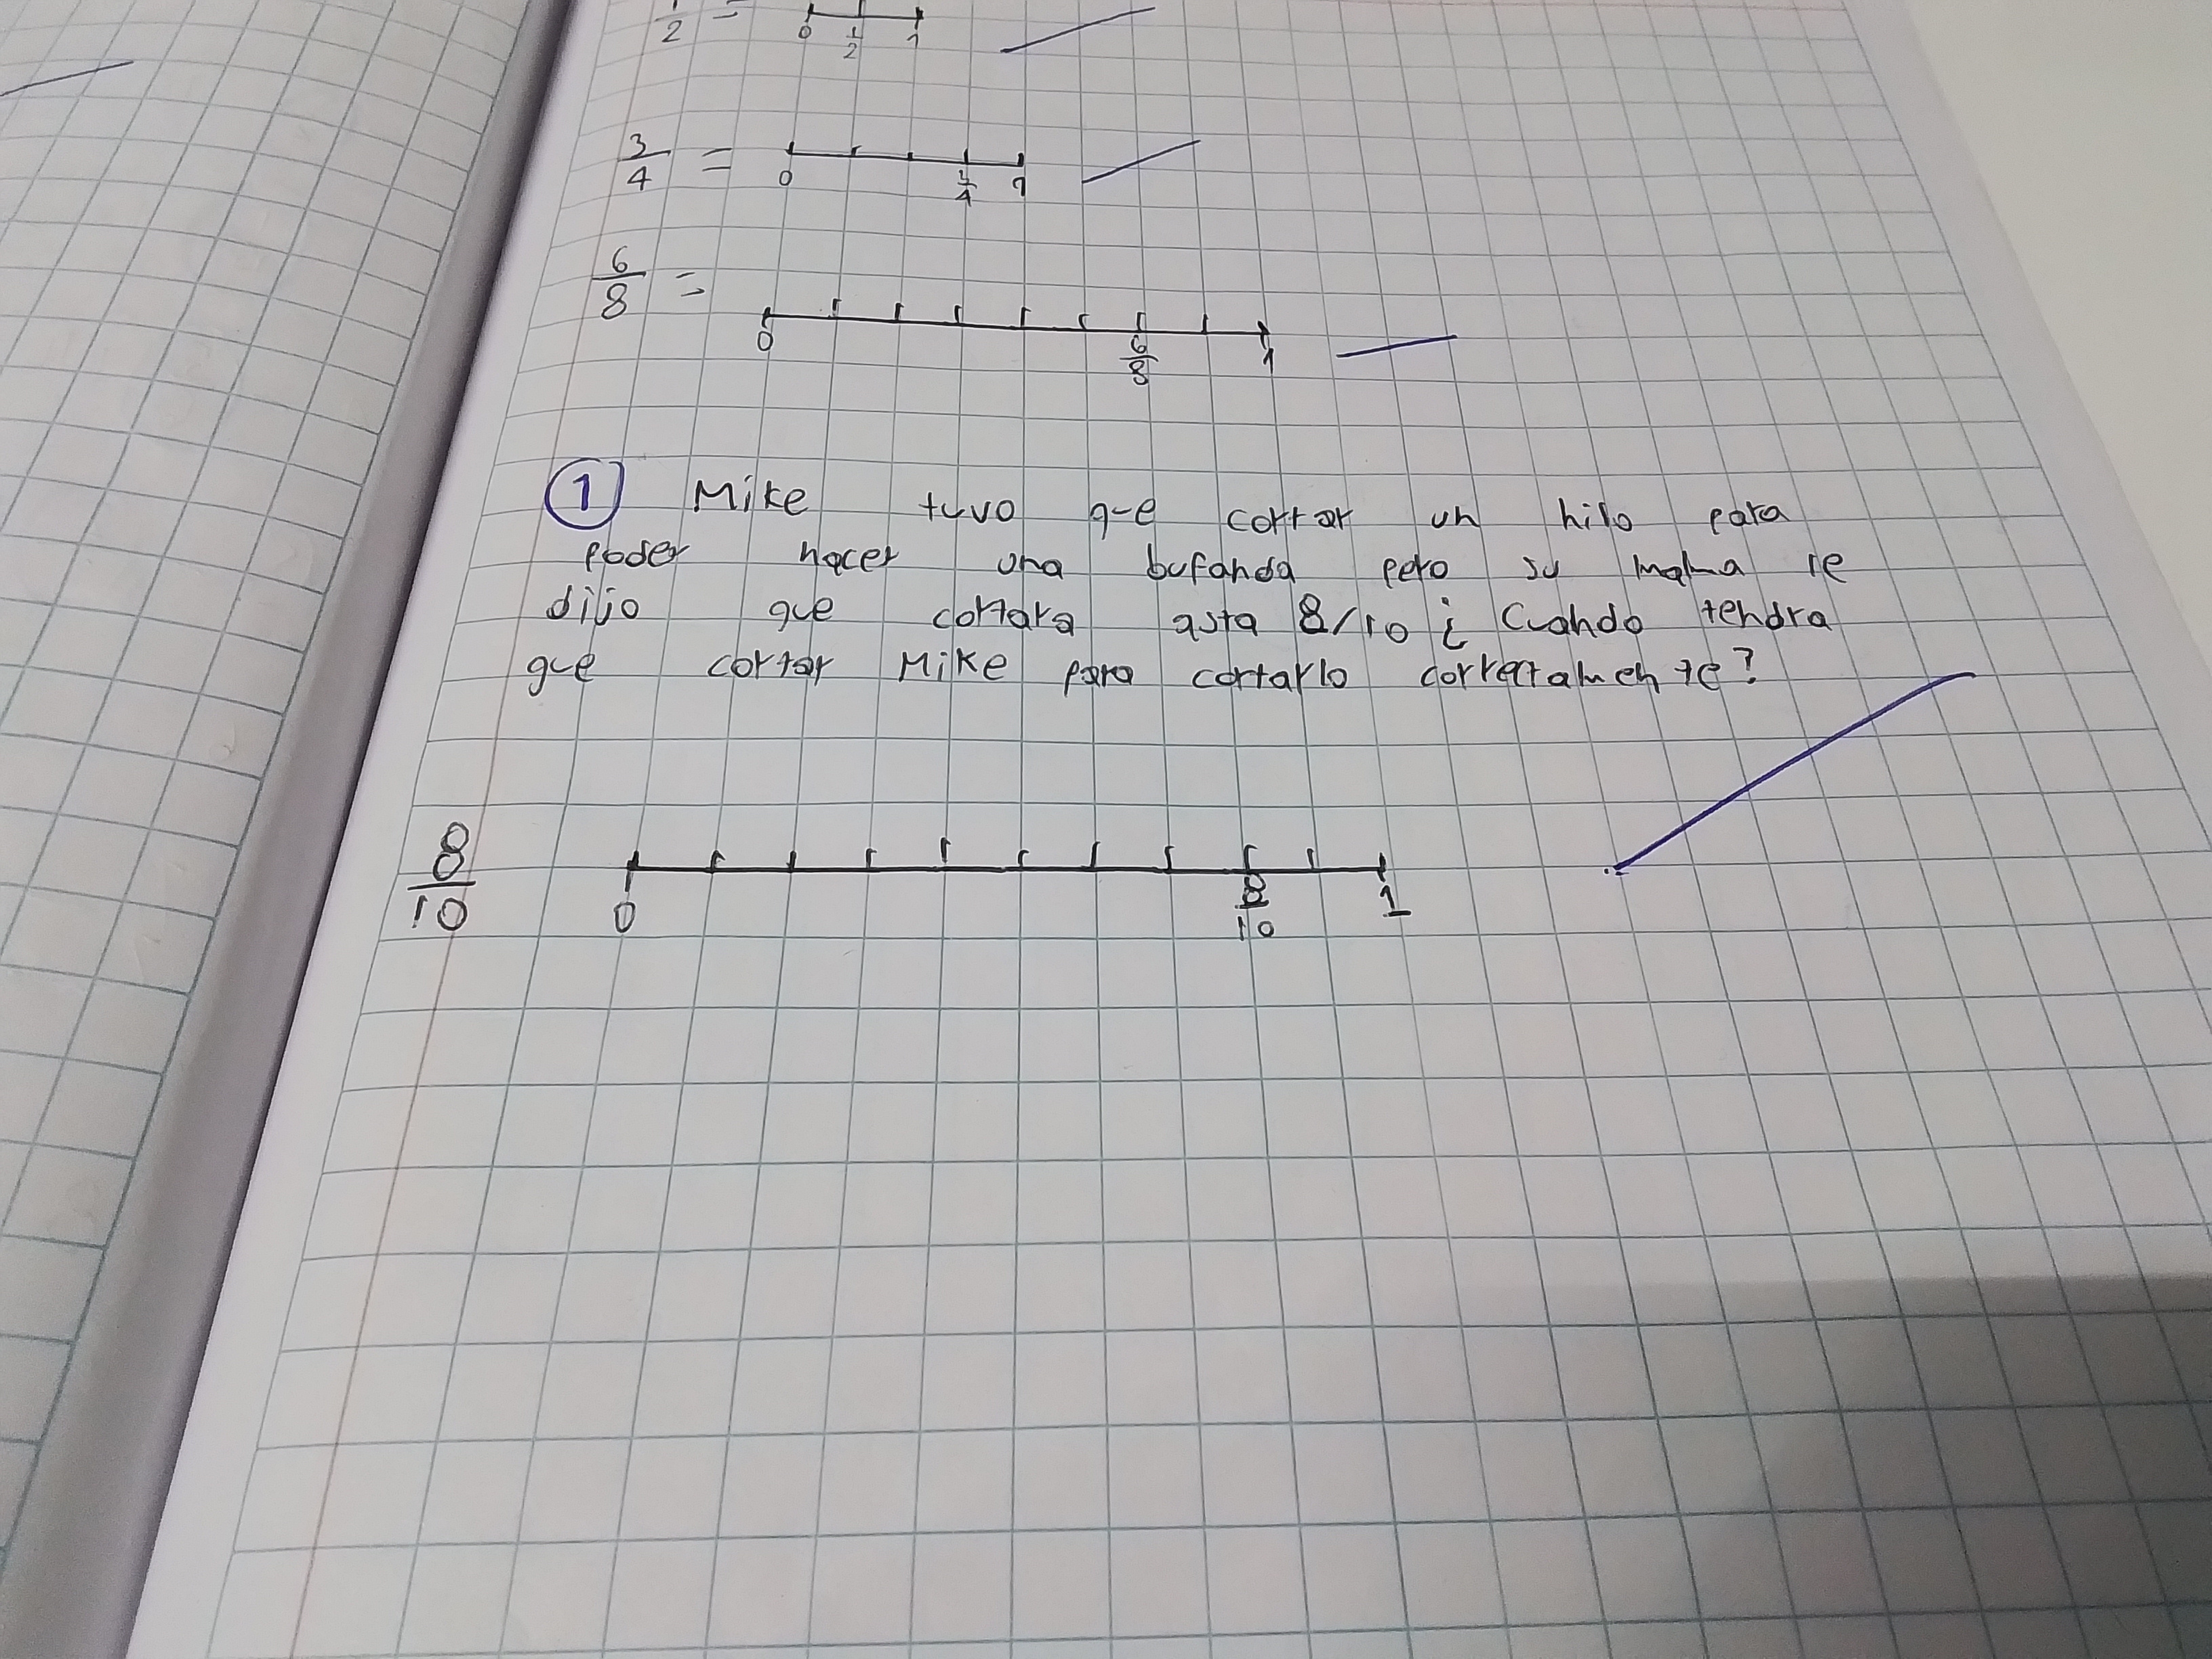 1/2 =
0 1/2 1
3/4 =
0 3/4 1
6/8 =
0 6/8 1
1 Mike tuvo que cortar un hilo para
poder hacer una bufanda pero su mama le
dijo que cortara asta 8/10 ¿ Cuando tendra
que cortar Mike para cortarlo correctamente?
8/10
0 8/10 1